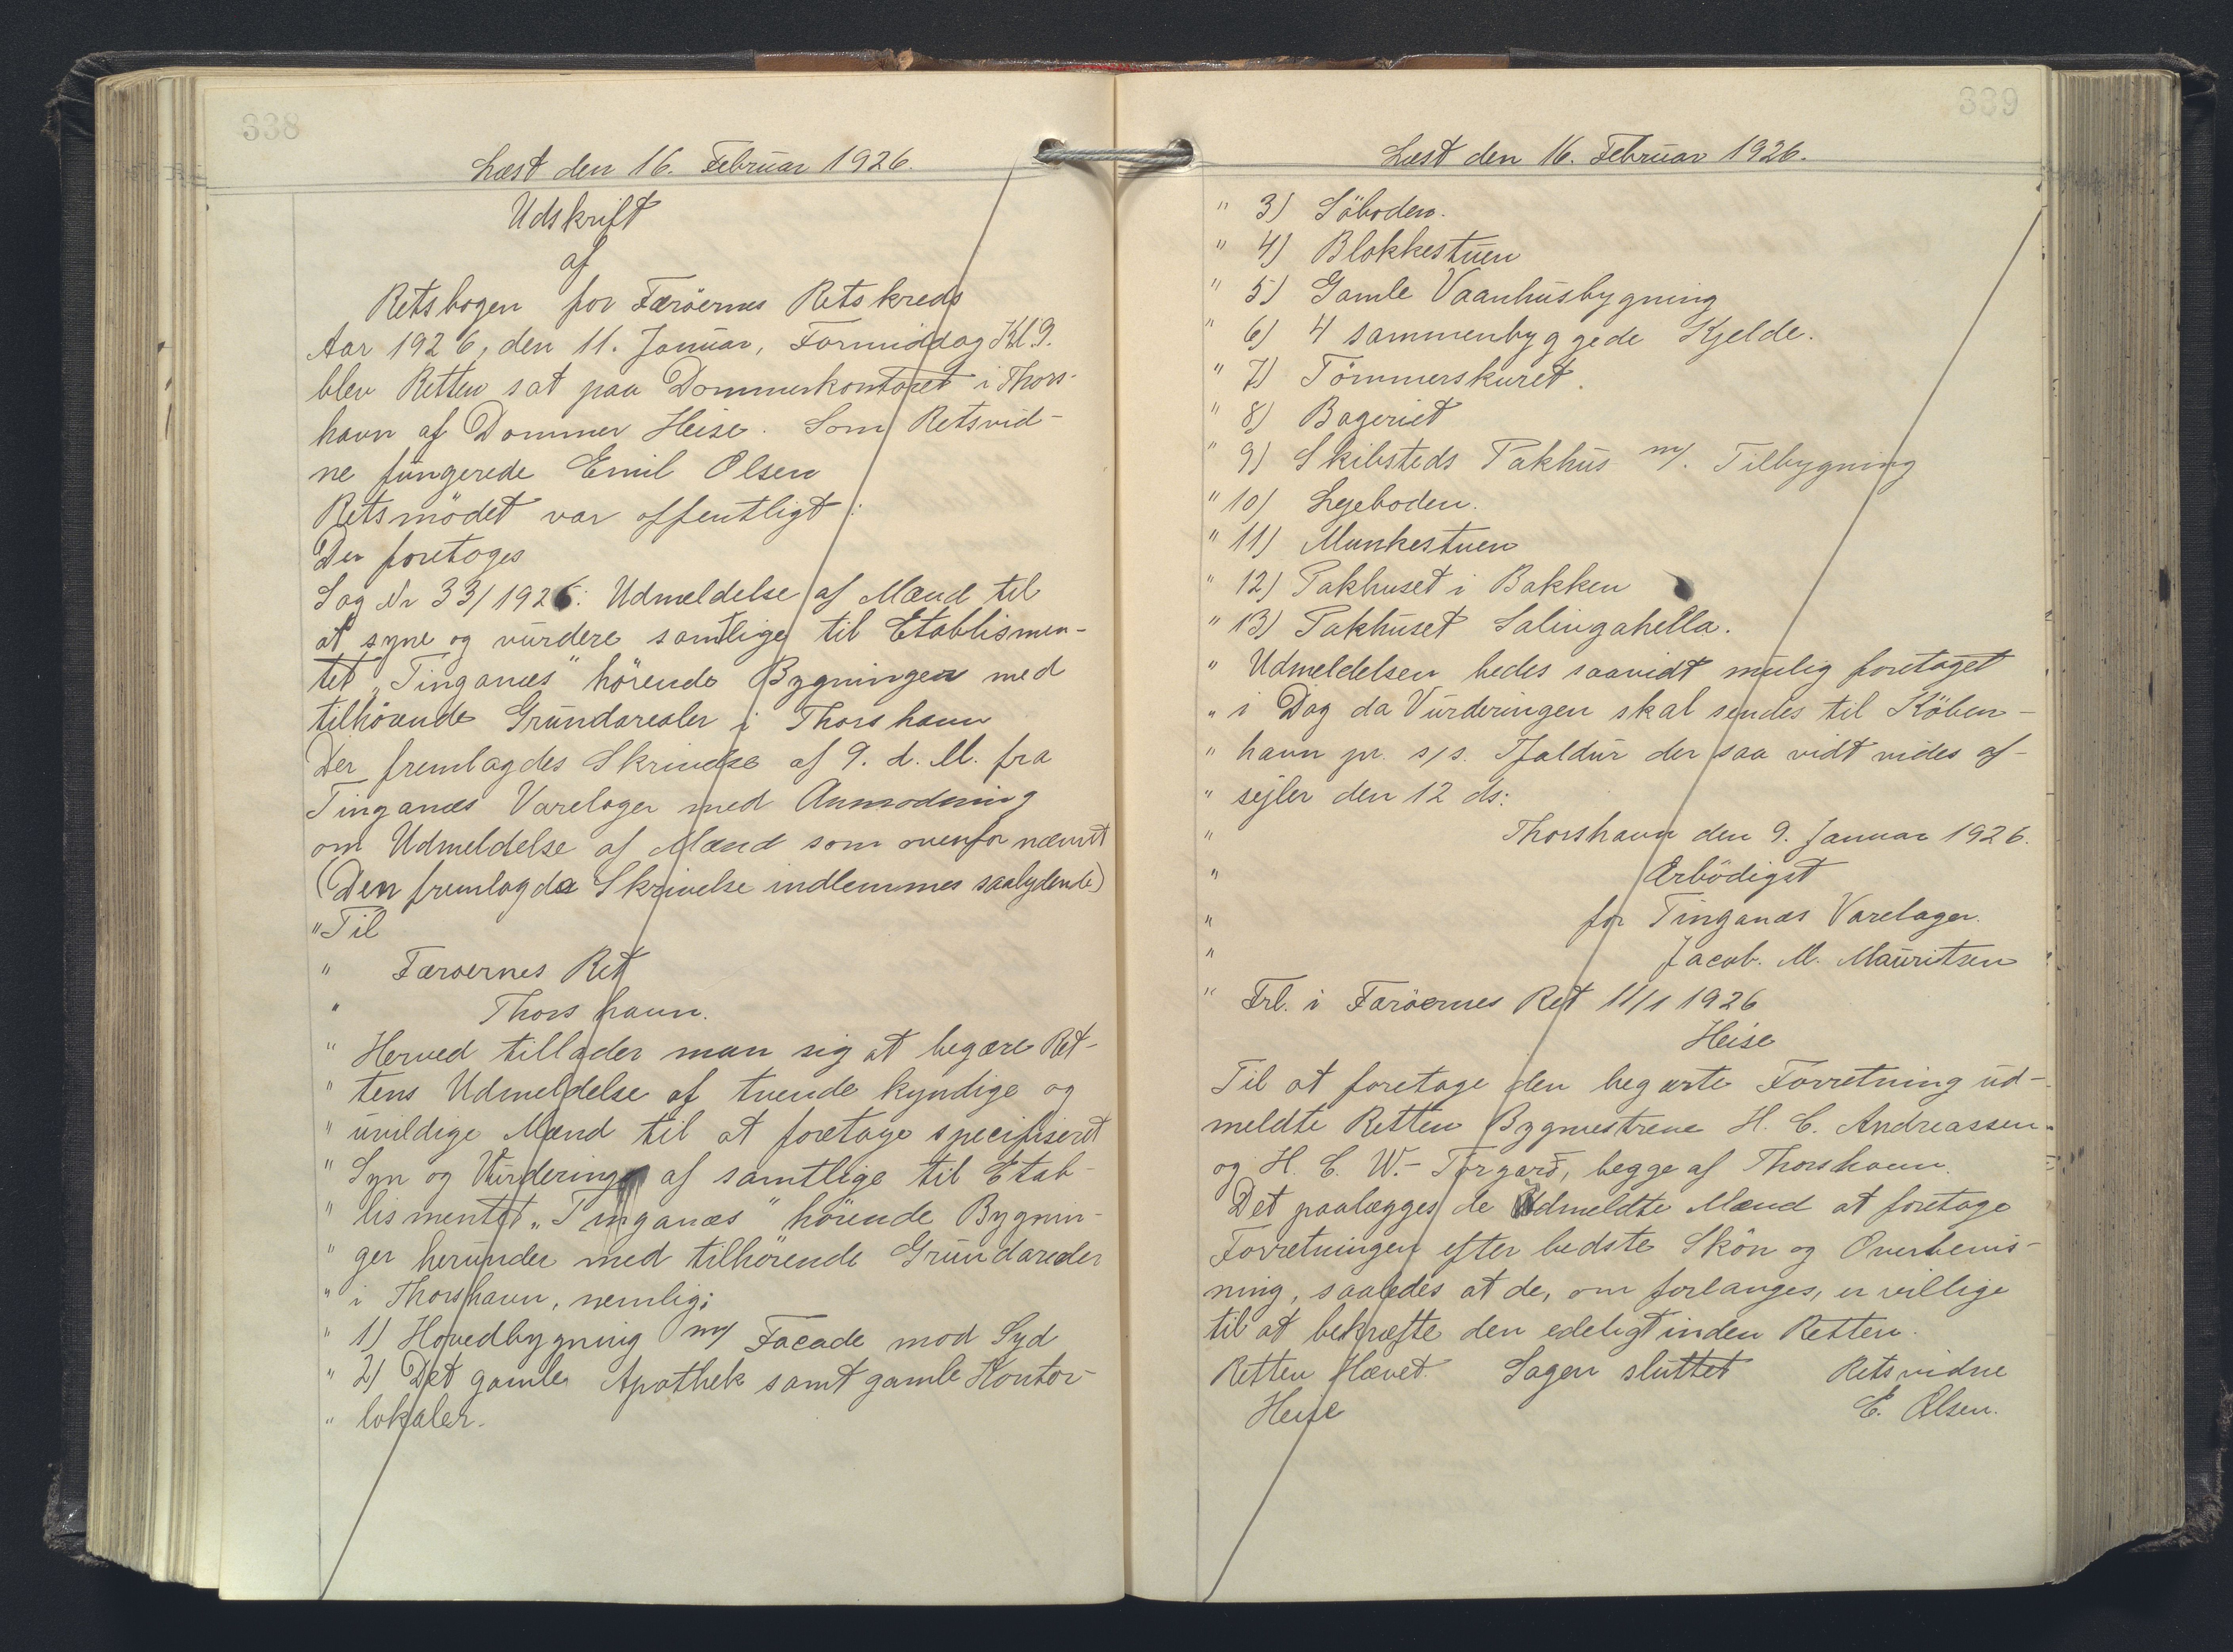 338
Læst den 16. Februar 1926.
Udskrift
af
Retsbogen for Færöernes Retskreds
Aar 1926, den 11. Januar, Formiddag Kl 9.
blev Retten sat paa Dommerkontoret i Thors-
havn af Dommer Heise. Som Retsvid-
ne fungerede Emil Olsen
Retsmödet var offentligt.
Der foretoges
Sag Nr 33/1926: Udmeldelse af Mænd til
at syne og vurdere samtlige til Etablismen-
tet „Tinganæs" hörende Bygninger med
tilhörende Grundarealer i Thorshavn
Der fremlagdes Skrivelse af 9. d. M. fra
Tinganæs Varelager med Anmodning
om Udmeldelse af Mænd som ovenfor nævnt
(Den fremlagde Skrivelse indlemmes saalydende)
" Til
" Færoernes Ret
" Thorshavn.
" Herved tillader man sig at begære Ret-
" tens Udmeldelse af tvende kyndige og
" uvildige Mænd til at foretage specifiseret
" Syn og Vurdering af samtlige til Etab-
" lismentet „Tinganæs" hörende Bygnin-
" ger herunder med tilhörende Grundarealer
" i Thorshavn, nemlig;
" 1) Hovedbygning m/ Facade mod Syd
" 2) Det gamle Apothek samt gamle Kontor-
" lokaler.
339
Læst den 16. Februar 1926.
" 3) Söboden.
" 4) Blokkestuen
" 5) Gamle Vaanhusbygning
" 6) 4 sammenbyggede Kjelde.
" 7) Tömmerskuret.
" 8) Bageriet
" 9) Skibsteds Pakhus m/. Tilbygning
" 10) Lejeboden.
" 11) Munkestuen
" 12) Pakhuset i Bakken
" 13) Pakhuset Salingahella.
" Udmeldelsen bedes saavidt mulig foretaget
" i Dag da Vurderingen skal sendes til Köben-
" havn pr. s/s. Tjaldur der saa vidt vides af-
" sejler den 12 ds:
" Thorshavn den 9. Januar 1926.
" Ærbödigst
" for Tinganæs Varelager.
" Jacob. M. Mauritsen
" Frl. i Færöernes Ret 11/1 1926
Heise
Til at foretage den begærte Forretning ud-
meldte Retten Bygmestrene H. C. Andreassen
og H. C. W.- Tórgarð, begge af Thorshavn.
Det paalægges de Udmeldte Mænd at foretage
Forretningen efter bedste Skön og Overbevis-
ning, saaledes at de, om forlanges, er villige
til at bekræfte den edeligt inden Retten.
Retten Hævet. Sagen sluttet Retsvidne
Heise E. Olsen.